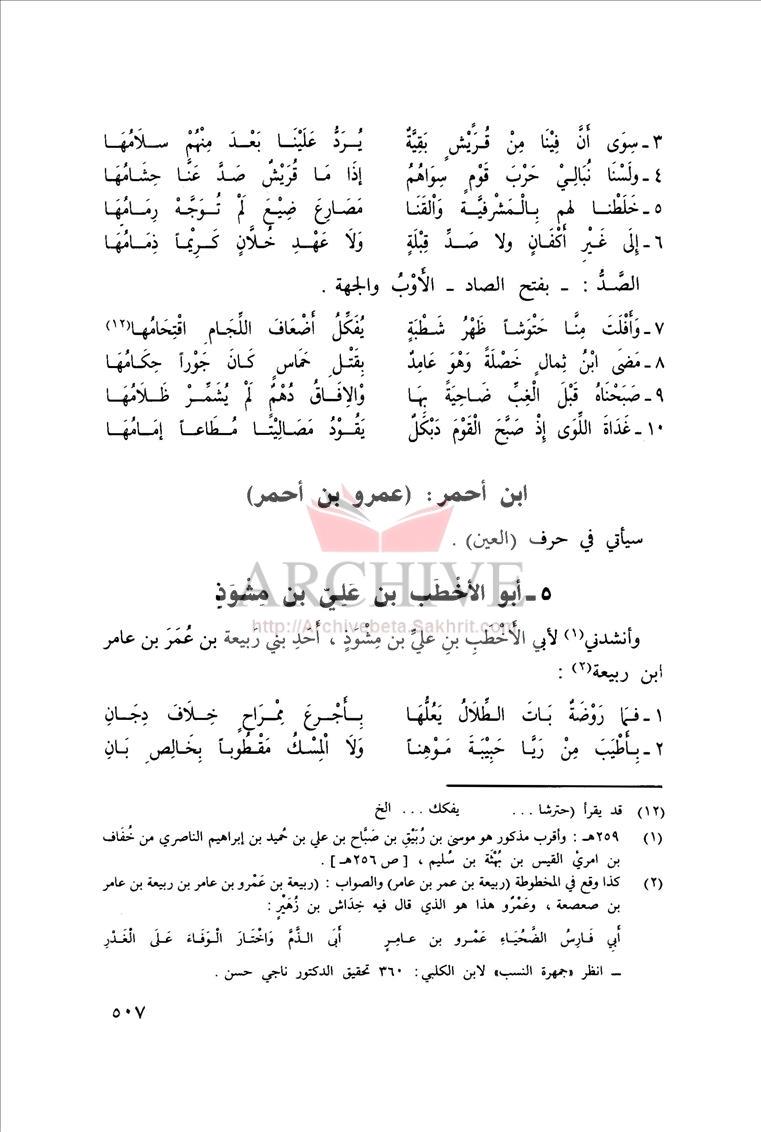 ٣ ـ سِوَى أَنَّ فِيْنَا مِنْ قُرَيْشٍ بَقِيَّةٌ يُرَدُّ عَلَيْنَا بَعْدَ مِنْهُمْ سلَامُهَا
٤ ـ ولَسْنَا نُبَالِيْ حَرْبَ قَوْمٍ سِوَاهُمُ إذَا مَا قُرَيْشٌ صَدَّ عَنَّا حِشَامُهَا
٥ ـ خَلَطْنا لهم بِالْمَشْرفيَّةِ وَالقَنَا مَصَارِعَ ضِيْعَ لَمْ تُوَجَّهْ رِمَامُهَا
٦ ـ إِلَى غَيْرِ أَكْفَانٍ ولا صَدِّ قِبْلَةٍ وَلَا عَهْدِ خُلَّانٍ كَرِيْماً ذِمَامُهَا
الصَّدُّ : ـ بفتح الصاد ـ الأَوْبُ والجهة .
٧ ـ وَأَفْلَتَ مِنَّا حَتْوَشاً ظَهْرُ شَطْبَةٍ يُفَكِّلُ أَضْعَافَ اللِّجَامِ اقْتِحَامُها(١٢)
٨ ـ مَضىَ ابْنُ ثِمالٍ خَصْلَةً وَهْوَ عَامِدٌ بِقَتْلِ خَمَاسٍ كَانَ جَوْراً حِكَامُهَا
٩ ـ صَبَحْنَاهُ قَبْلَ الْغِبِّ ضَاحِيَةً بِهَا وْالِافَاقُ دُهْمٌ لَمْ يُشَمِّرْ ظَلَامُهَا
١٠ ـ غَدَاةَ اللِّوَى إِذْ صَبَّحَ الْقَوْمَ دَبْكَلٌ يَقُوْدُ مَصَالِيْتَا مُطَاعاً إمَامُهَا
ابن أحمر : (عمرو بن أحمر)
سيأتي في حرف (العين) .
ARCHIVE
٥ ـ أبو الأخْطَبِ بن عَلِيّ بن مِشْوَذٍ
http://Archivebeta.Sakhrit.com
وأنشدني(١) لأبي الأَخْطَبِ بنِ عَليِّ بن مِشْوَذٍ ، أَحَدِ بني رَبيعة بن عُمَرَ بن عامر
ابن ربيعة(٢) :
١ ـ فمَا رَوْضَةٌ بَاتَ الطِّلَالُ يَعُلُّهَا بِأَجْرِعَ مِمْرَاحٍ خِلَافَ دِجَانِ
٢ ـ بِأَطْيَبَ مِنْ رَيَّا حَبِيْبَةَ مَوْهِناً وَلَا الْمِسْكُ مَقْطُوباً بِخَالِصِ بَانِ
(١٢) قد يقرأ (حترشا ... يفكك ... الخ
(١) ٢٥٩هـ : وأقرب مذكور هو موسىَ بن رُبَيْقِ بن صَبَّاح بن علي بن حُميد بن إبراهيم الناصري من خُفَاف
بن امريْ القيس بن بُهْثَة بن سُليم ، [ ص ٢٥٦هـ ] .
(٢) كذا وقع في المخطوطة (ربيعة بن عمر بن عامر) والصواب : (ربيعة بن عَمْرو بن عامر بن ربيعة بن عامر
بن صعصعة ، وعَمْرُو هذا هو الذي قال فيه خِدَاش بن زُهَيْرٍ :
أَبِي فَارِسُ الضَّحْيَاءِ عَمْرو بن عامِرٍ أَبَى الذَّمَّ وَاخْتَارَ الْوَفَاءَ عَلَى الْغَدْرِ
ــ انظر «جمهرة النسب» لابن الكلبي : ٣٦٠ تحقيق الدكتور ناجي حسن .
٥٠٧